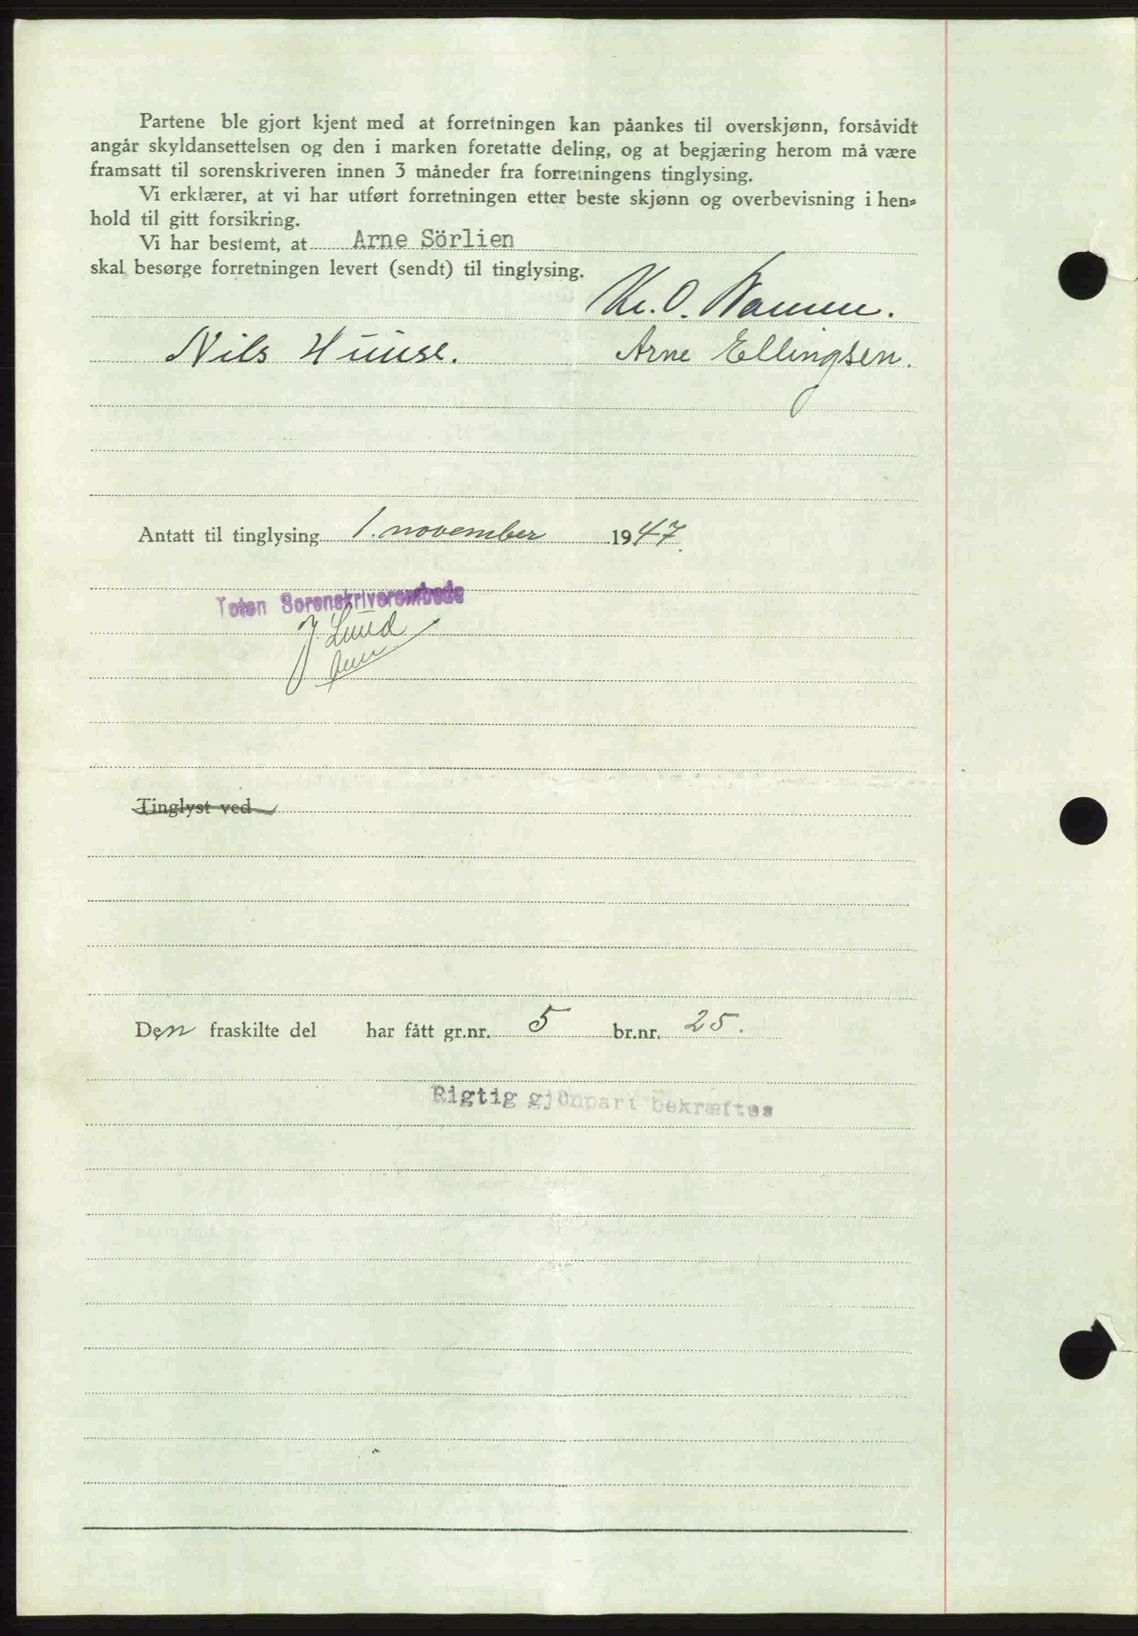 Partene ble gjort kjent med at forretningen kan påankes til overskjønn, forsåvidt
angår skyldansettelsen og den i marken foretatte deling, og at begjæring herom må være
framsatt til sorenskriveren innen 3 måneder fra forretningens tinglysing.
Vi erklærer, at vi har utført forretningen etter beste skjønn og overbevisning i hen-
hold til gitt forsikring.
Vi har bestemt, at Arne Sörlien
skal besørge forretningen levert (sendt) til tinglysing.
Kr. O.
Nils Huuse. Arne Ellingsen.
Antatt til tinglysing 1. november 1947.
Toten Sorenskriverembede
J. Lund
Tinglyst ved
Den fraskilte del har fått gr.nr. 5 br.nr. 25.
Rigtig gjönpart bekræftes